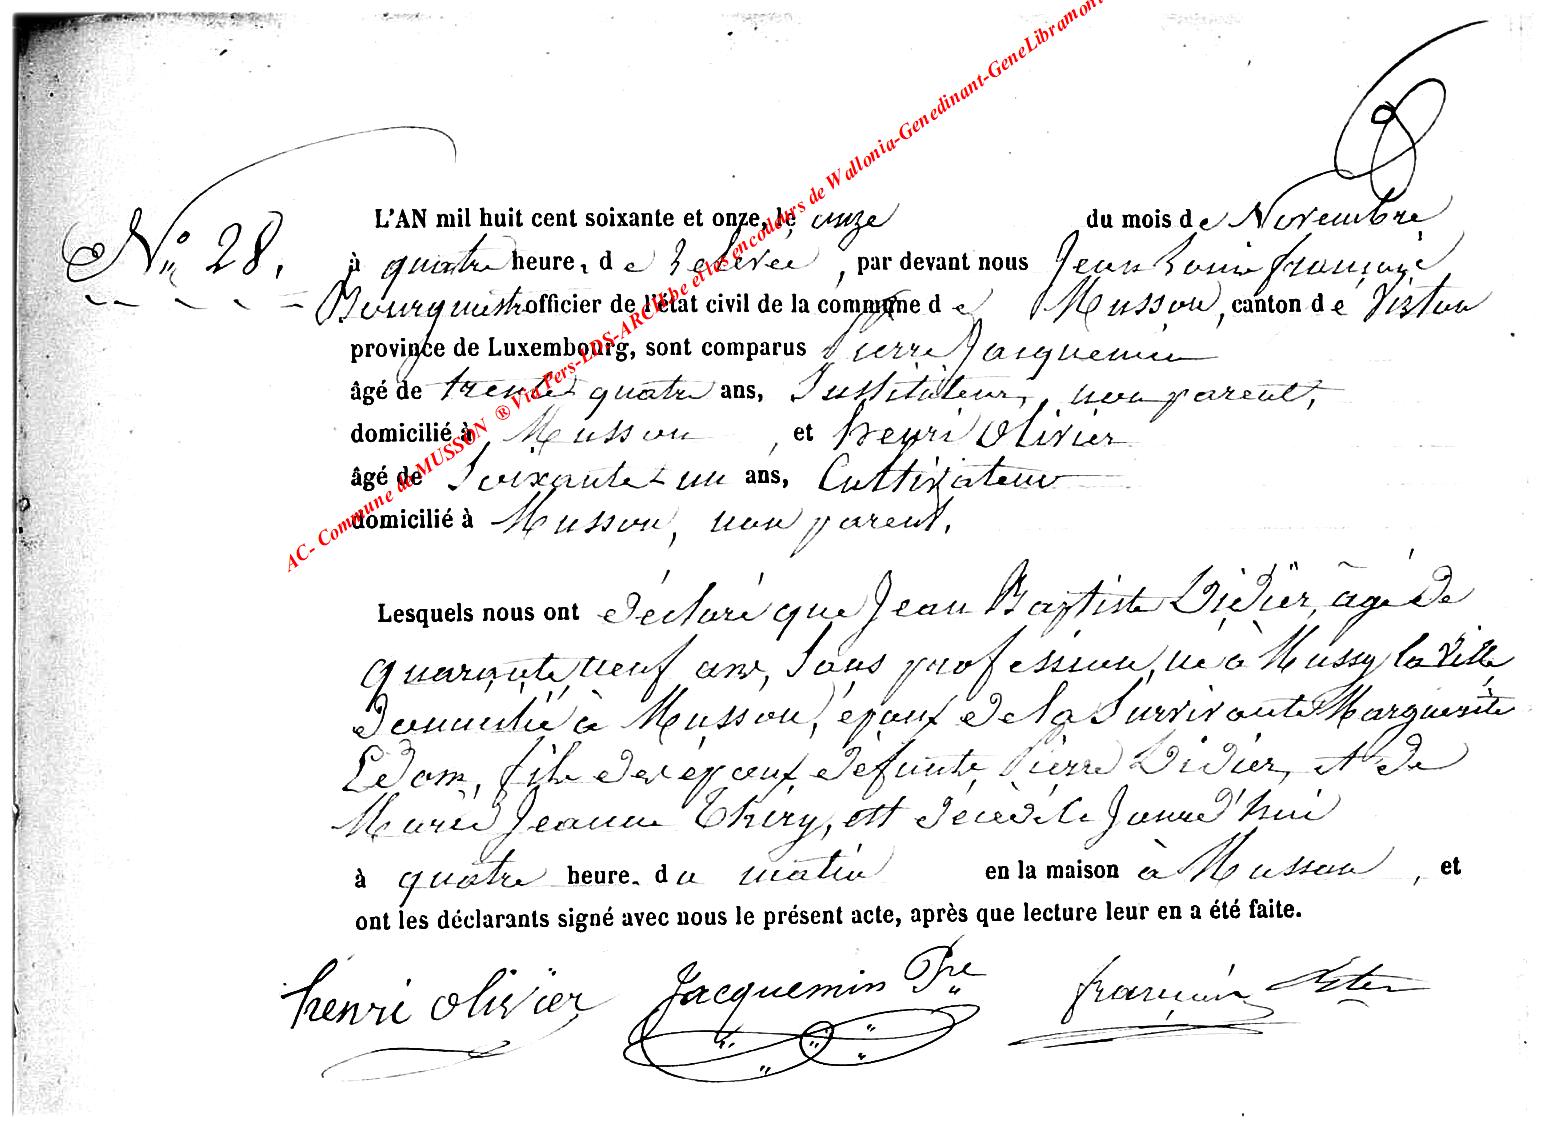 N° 28.
L'AN mil huit cent soixante et onze, le onze du mois de Novembre
à quatre heure, de Relevée, par devant nous Jean Louis françois
Bourguestre officier de l'état civil de la commune de Musson, canton de Virton
province de Luxembourg, sont comparus Pierre Jacquemin
âgé de trente quatre ans, Instituteur, non parent,
domicilié à Musson, et henri Olivier
âgé de Soixante un ans, Cultivateur
domicilié à Musson, non parent.
Lesquels nous ont déclaré que Jean Baptiste Didier, âgé de
quarante neuf ans, Sans profession, né à Mussy la Ville
domicilié à Musson, époux de la Survivante Marguerite
fils des époux défunts Pierre Didier, et de
Marie Jeanne Thiry, est décédé le Jourd'hui
à quatre heure. du matin en la maison à Musson, et
ont les déclarants signé avec nous le présent acte, après que lecture leur en a été faite.
henri olivier Jacquemin Pre françois
AC- Commune de MUSSON ® Via Pers-LDS-ARCH.be et les encodeurs de Wallonia-Genedinant-GeneLibramont